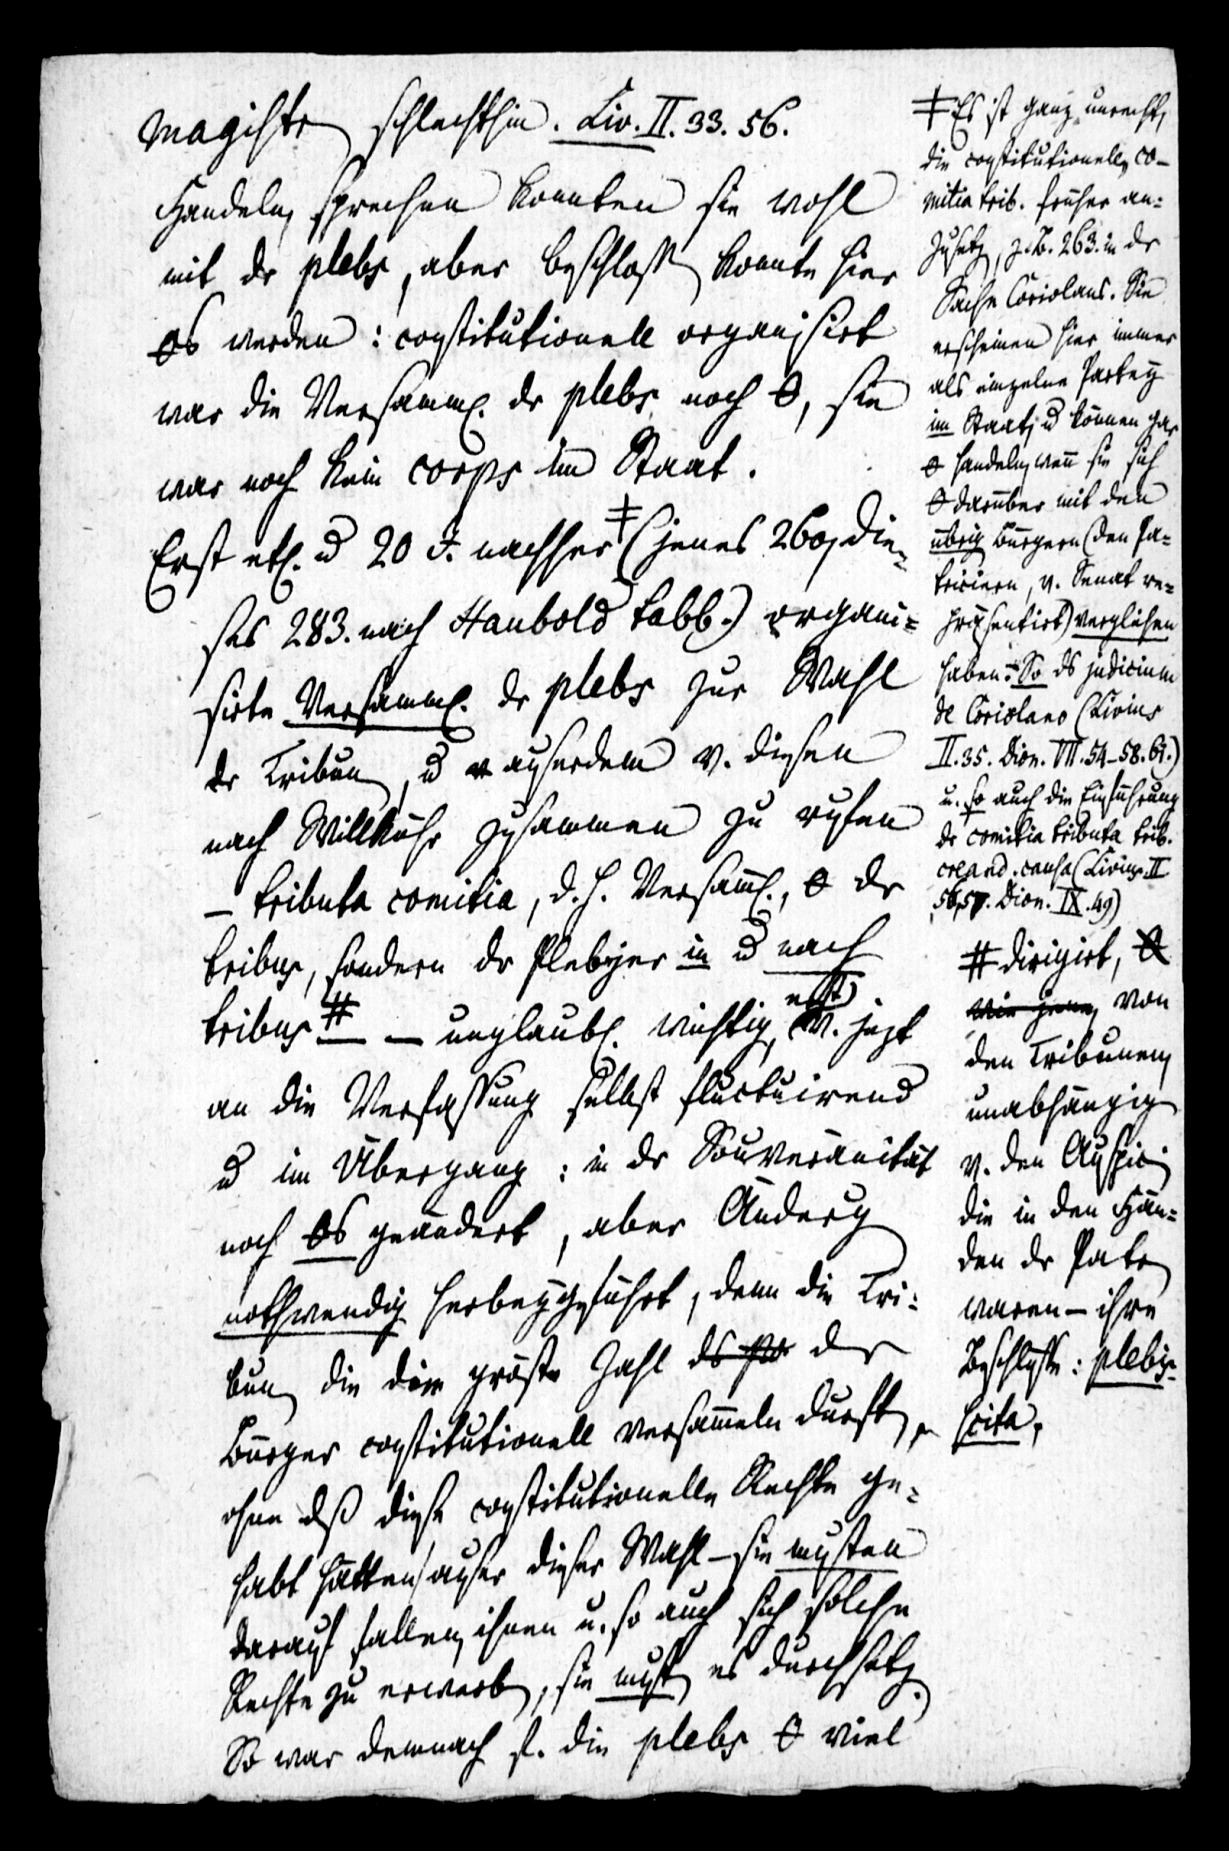 Magistr schlechthin. Liv. II. 33. 56.
Handeln, sprechen konnten sie wohl
mit dr plebs, aber beschlossen konnte hier
θs werden: constitutionell organisirt
war die Versamml. dr plebs noch θ, sie
war noch kein corps im Staat.
Erst etl. u 20 J. nachher ‡ (jenes 260, die-
ses 283. nach Haubold tabb.) organi-
sirte Versamml. dr plebs zur Wahl
dr Tribunen, u ausserdem v. diesen
nach Willkühr zusammen zu rufen
– tributa comitia, d. h. Versamml., θ dr
tribus, sondern dr Plebejer in u nach
tribus # – unglaubl. wichtig, erst v. jezt
an die Verfassung selbst fluctuirend
u im Übergang: in dr Souveränität
noch θs geändert, aber Änderg
nothwendig herbeygeführt, denn die Tri-
bunen die die gröste Zahl ds der
Bürger constitutionell versammeln durften,
ohne dß diese constitutionelle Rechte ge-
habt hätten ausser dieser Wahl – sie mussten
darauf fallen, ihnen u. so auch sich solche
Rechte zu erwerben, sie mussten es durchsetzen.
So war demnach f. die plebs θ viel
‡ Es ist ganz unrecht,
die constitutionellen co-
mitia trib. früher an-
zusetzen, z. B. 263. in dr
Sache Coriolans. Sie
erscheinen hier immer
als einzelne Partey
im Staat, u können gar
θ handeln, wenn sie sich
θ darüber mit den
übrigen Bürgern (den Pa-
triciern, v. Senat re-
präsentirt) verglichen
haben. – So ds judicium
de Coriolano (Livius
II. 35. Dion. VII. 54–58. 61.)
u. so auch die Einführung
dr comitia tributa trib.
creand. causa (Livius II
56, 57. Dion. IX. 49)
# dirigirt, θ
wie jene, von
den Tribunen,
unabhängig
v. den Auspicien
die in den Hän-
den dr Patr
waren – ihre
Beschlüsse: plebis-
scita,